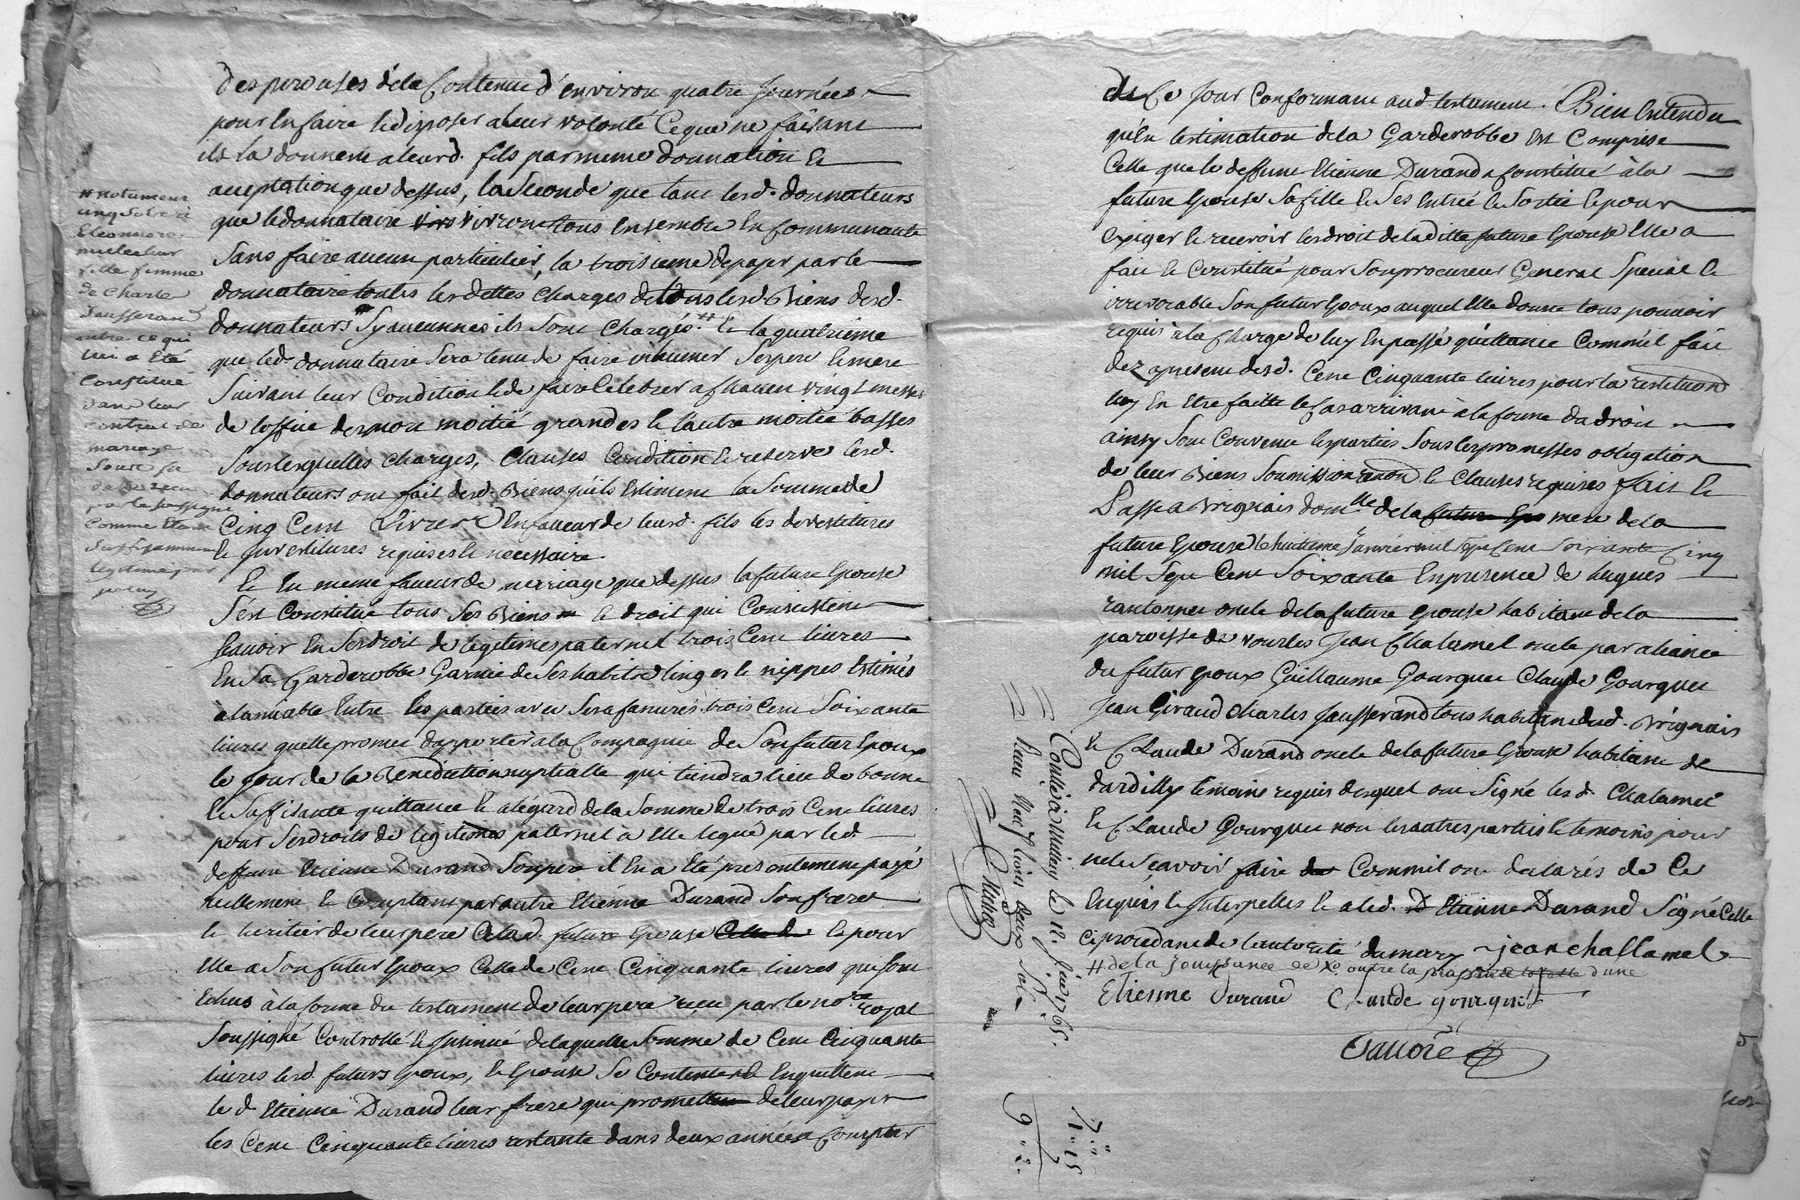 des perouses de la Contenue d'environ quatre Journées
pour En faire Et disposer a leur volonté Ce que ne faisant
ils la donnent a leurd. fils par meme donnation Et
acceptation que dessus, la Seconde que tant lesd. donnateurs
que le donnataire vivront tous Ensemble En Communauté
Sans faire aucun particulier, la troisieme de payer par le
donnataire toutes les dettes Charges de tous lesd. Biens desd.
donnateurs Sy aucunnes ils Sont Chargés # Et la quatrieme
que led. donnataire Sera tenu de faire inhumer Ses pere Et mere
Suivant leur Condition Et de faire Celebrer a Chacun vingt messes
de l'office des mort moitié grandes Et l'autre moitié basses
Sous lesquelles Charges, Clauses Condition Et reserve lesd.
donnateurs ont fait desd. Biens qu'ils Estiment la Somme de
Cinq Cent Livres En faveur de leurd. fils les devestitures
Et Investitures requises Et necessaire.
Et En meme faveur de marriage que dessus la future Epouse
S'est Constitué tous Ses Biens Et droit qui Consistent
Scavoir En Ses droit de legitimes paternel trois Cent livres
En Sa Garderobbe Garnie de Ses habits linges Et nippes Estimés
a l'amiable Entre les parties avec Ses fanures trois Cent Soixante
livres quelle promet d'apporter a la Compagnie de Son futur Epoux
le jour de la Benediction nuptialle qui tiendra lieu de bonne
Et Suffisante quittance Et a légard de la Somme de trois Cent livres
pour Ses droits de legitimes paternel a Elle legué par led.
deffunt Etienne Durand Son pere il En a Eté presentement payé
reellement Et Comptant par autre Etienne Durand Son frere
Et heritier de leur pere a lad. future Epouse Et pour
Elle a Son futur Epoux Celle de Cent Cinquante livres qui Sont
Echus a la forme du testament de leur pere recu par le nore royal
Soussigné Controllé Et Insinué de laquelle Somme de Cent Cinquante
livres lesd. futurs Epoux, Et Epouse Se Contentent En quittent
le d. Etienne Durand leur frere qui promet de leur payer
les Cent Cinquante livres restante dans deux années a Compter
# notament
une
Eleonnore
leur
fille femme
de Charle
Jausserand
outre ce qui
lui a Eté
Constitué
dans leur
contrat de
mariage
comme Etant
Suffisamment
legitimé par
de Ce Jour Conformant aud. testament. Bien Entendu
qu'En l'estimation de la Garderobbe Est Comprise
Celle que le deffunt Etienne Durand a Constitué à la
future Epouse Sa fille Et Ses Entrée Et Sortie Et pour
Exiger Et recevoir les droit de la ditte future Epouse Elle a
fait Et Constitué pour Son procureur General Special Et
irrevocable Son futur Epoux auquel Elle donne tous pouvoir
requis à la Charge de luy En passé quittance Comme il fait
dez apresent desd. Cent Cinquante livres pour la restitution
luy En Etre faitte le Cas arrivant à la forme du droit
ainsy Sont Convenu les parties Sous les promesses obligation
de leur Biens Soumission renon. Et Clauses requises fait Et
Passé a Brignais domlle de la mere de la
future Epouse le huitieme Janvier mil Sept Cent Soixante Cinq
mil Sept Cent Soixante En presence de hugues
oncle de la future Epouse habitant de la
paroisse de vourles Jean Chalamel oncle par aliance
du futur Epoux Guillaume Gourguet Claude Gourguet
Jean Giraud Charles Jausserand tous habitant dud. Brignais
Et Claude Durand oncle de la future Epouse habitant de
dardilly temoins requis desquel ont Signé les d. Chalamel
Et Claude Gourguet non les autres parties Et temoins pour
ne le Scavoir faire Comme il ont declarés de Ce
Enquis Et Interpellés Et a led. Etienne Durand Signé Celle
Ci procedant de l'autorité du marz jean challamel
# de la Jouissance de
Etienne Durand Claude gourguet
Controlé à Millery le 18. Janv. 1765.
Recu Neuf livres deux Sols
7..
1..15
9..2